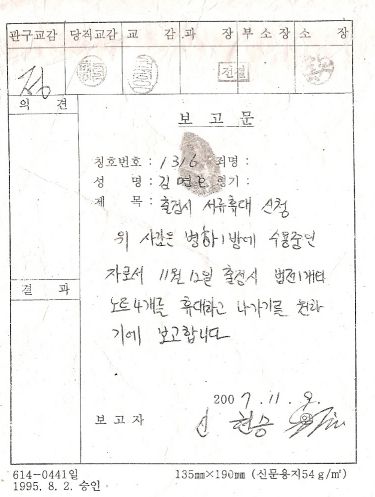 관구교감 당직교감 교 감 과 장 부소장 소 장
전결
의 견
보 고 문
칭호번호 : 1316 죄명 :
성 명 : 김 형기 :
제 목 : 출정시 서류휴대 신청
위 사람은 병하1방에 수용중인
자로서 11월 12일 출정시 법전1개와
노트 4개를 휴대하고 나가기를 원하
기에 보고합니다.
결 과
2007. 11. 9.
보 고 자 신 현승
614-0441일
1995. 8. 2. 승인
135㎜×190㎜ (신문용지54g/㎡)